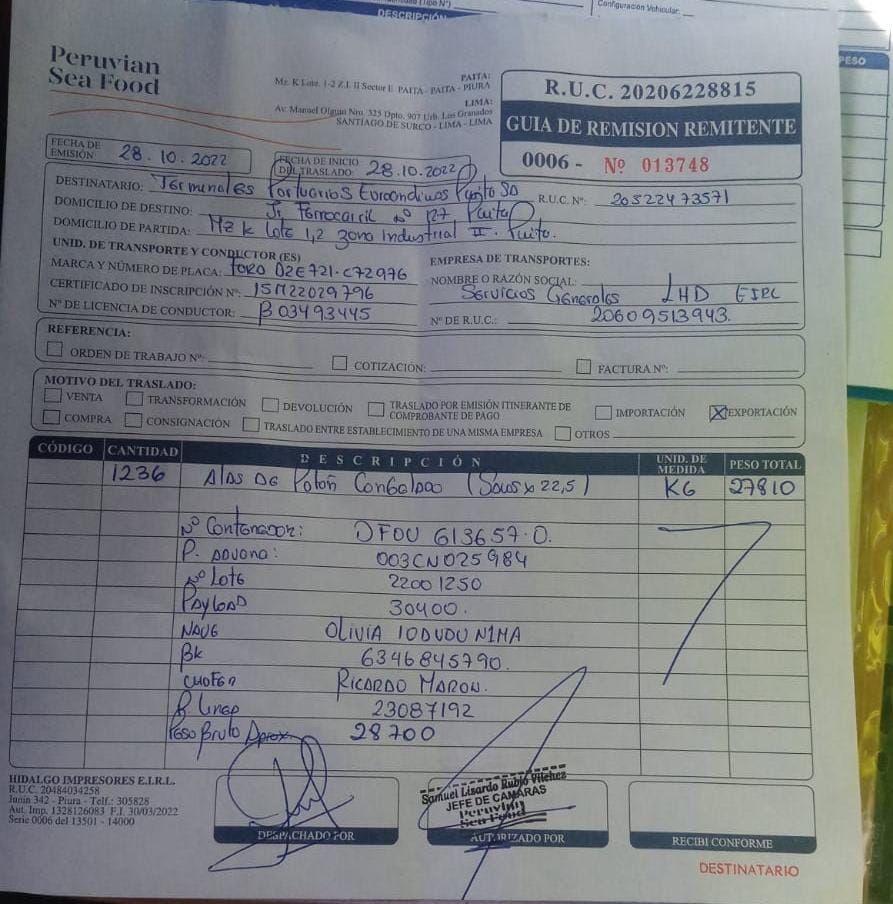 DESCRIPCIÓN
Configuración Vehicular:
PESO
Peruvian
Sea Food
PAITA:
Mz. K Lote. 1-2 Z.I. II Sector E PAITA - PAITA - PIURA
LIMA:
Av. Manuel Olguin Nro. 325 Dpto. 907 Urb. Los Granados
SANTIAGO DE SURCO - LIMA - LIMA
R.U.C. 20206228815
GUIA DE REMISION REMITENTE
0006 - Nº 013748
FECHA DE EMISIÓN 28.10.2022
FECHA DE INICIO DEL TRASLADO: 28.10.2022
DESTINATARIO: Terminales Portuarios Euroandinos Paita SA R.U.C. Nº: 20522473571
DOMICILIO DE DESTINO: Jr Ferrocarril Nº 127 Paita
DOMICILIO DE PARTIDA: Mz K Lote 1,2 zona Industrial II. Paita.
UNID. DE TRANSPORTE Y CONDUCTOR (ES)
MARCA Y NÚMERO DE PLACA: FORO D2E721-C72976
CERTIFICADO DE INSCRIPCIÓN Nº: 15M22029796
Nº DE LICENCIA DE CONDUCTOR: B03493445
EMPRESA DE TRANSPORTES:
NOMBRE O RAZÓN SOCIAL:
Servicios Generales LHD EIRL
Nº DE R.U.C.: 20609513943.
REFERENCIA:
ORDEN DE TRABAJO Nº: COTIZACIÓN: FACTURA Nº:
MOTIVO DEL TRASLADO:
VENTA TRANSFORMACIÓN DEVOLUCIÓN TRASLADO POR EMISIÓN ITINERANTE DE COMPROBANTE DE PAGO IMPORTACIÓN EXPORTACIÓN
COMPRA CONSIGNACIÓN TRASLADO ENTRE ESTABLECIMIENTO DE UNA MISMA EMPRESA OTROS
CÓDIGO CANTIDAD DESCRIPCIÓN UNID. DE MEDIDA PESO TOTAL
1236 Alas De Poton Congelado (Sacos x 22,5) KG 27810
Nº Contenedor: DFOU 613657.0.
P. Aduana: 003CN025984
Nº Lote 22001250
Payload 30400.
Nave OLIVIA
BK 6346845790.
Chofer RICARDO MARON.
P. Linea 23087192
Peso Bruto Aprox. 28700
HIDALGO IMPRESORES E.I.R.L.
R.U.C. 20484034258
Junin 342 - Piura - Telf.: 305828
Aut. Imp. 1328126083 F.I. 30/03/2022
Serie 0006 del 13501 - 14000
DESPACHADO POR
Samuel Lisardo Rubio Vilchez
JEFE DE CAMARAS
Peruvian
Sea Food
AUTORIZADO POR
RECIBI CONFORME
DESTINATARIO